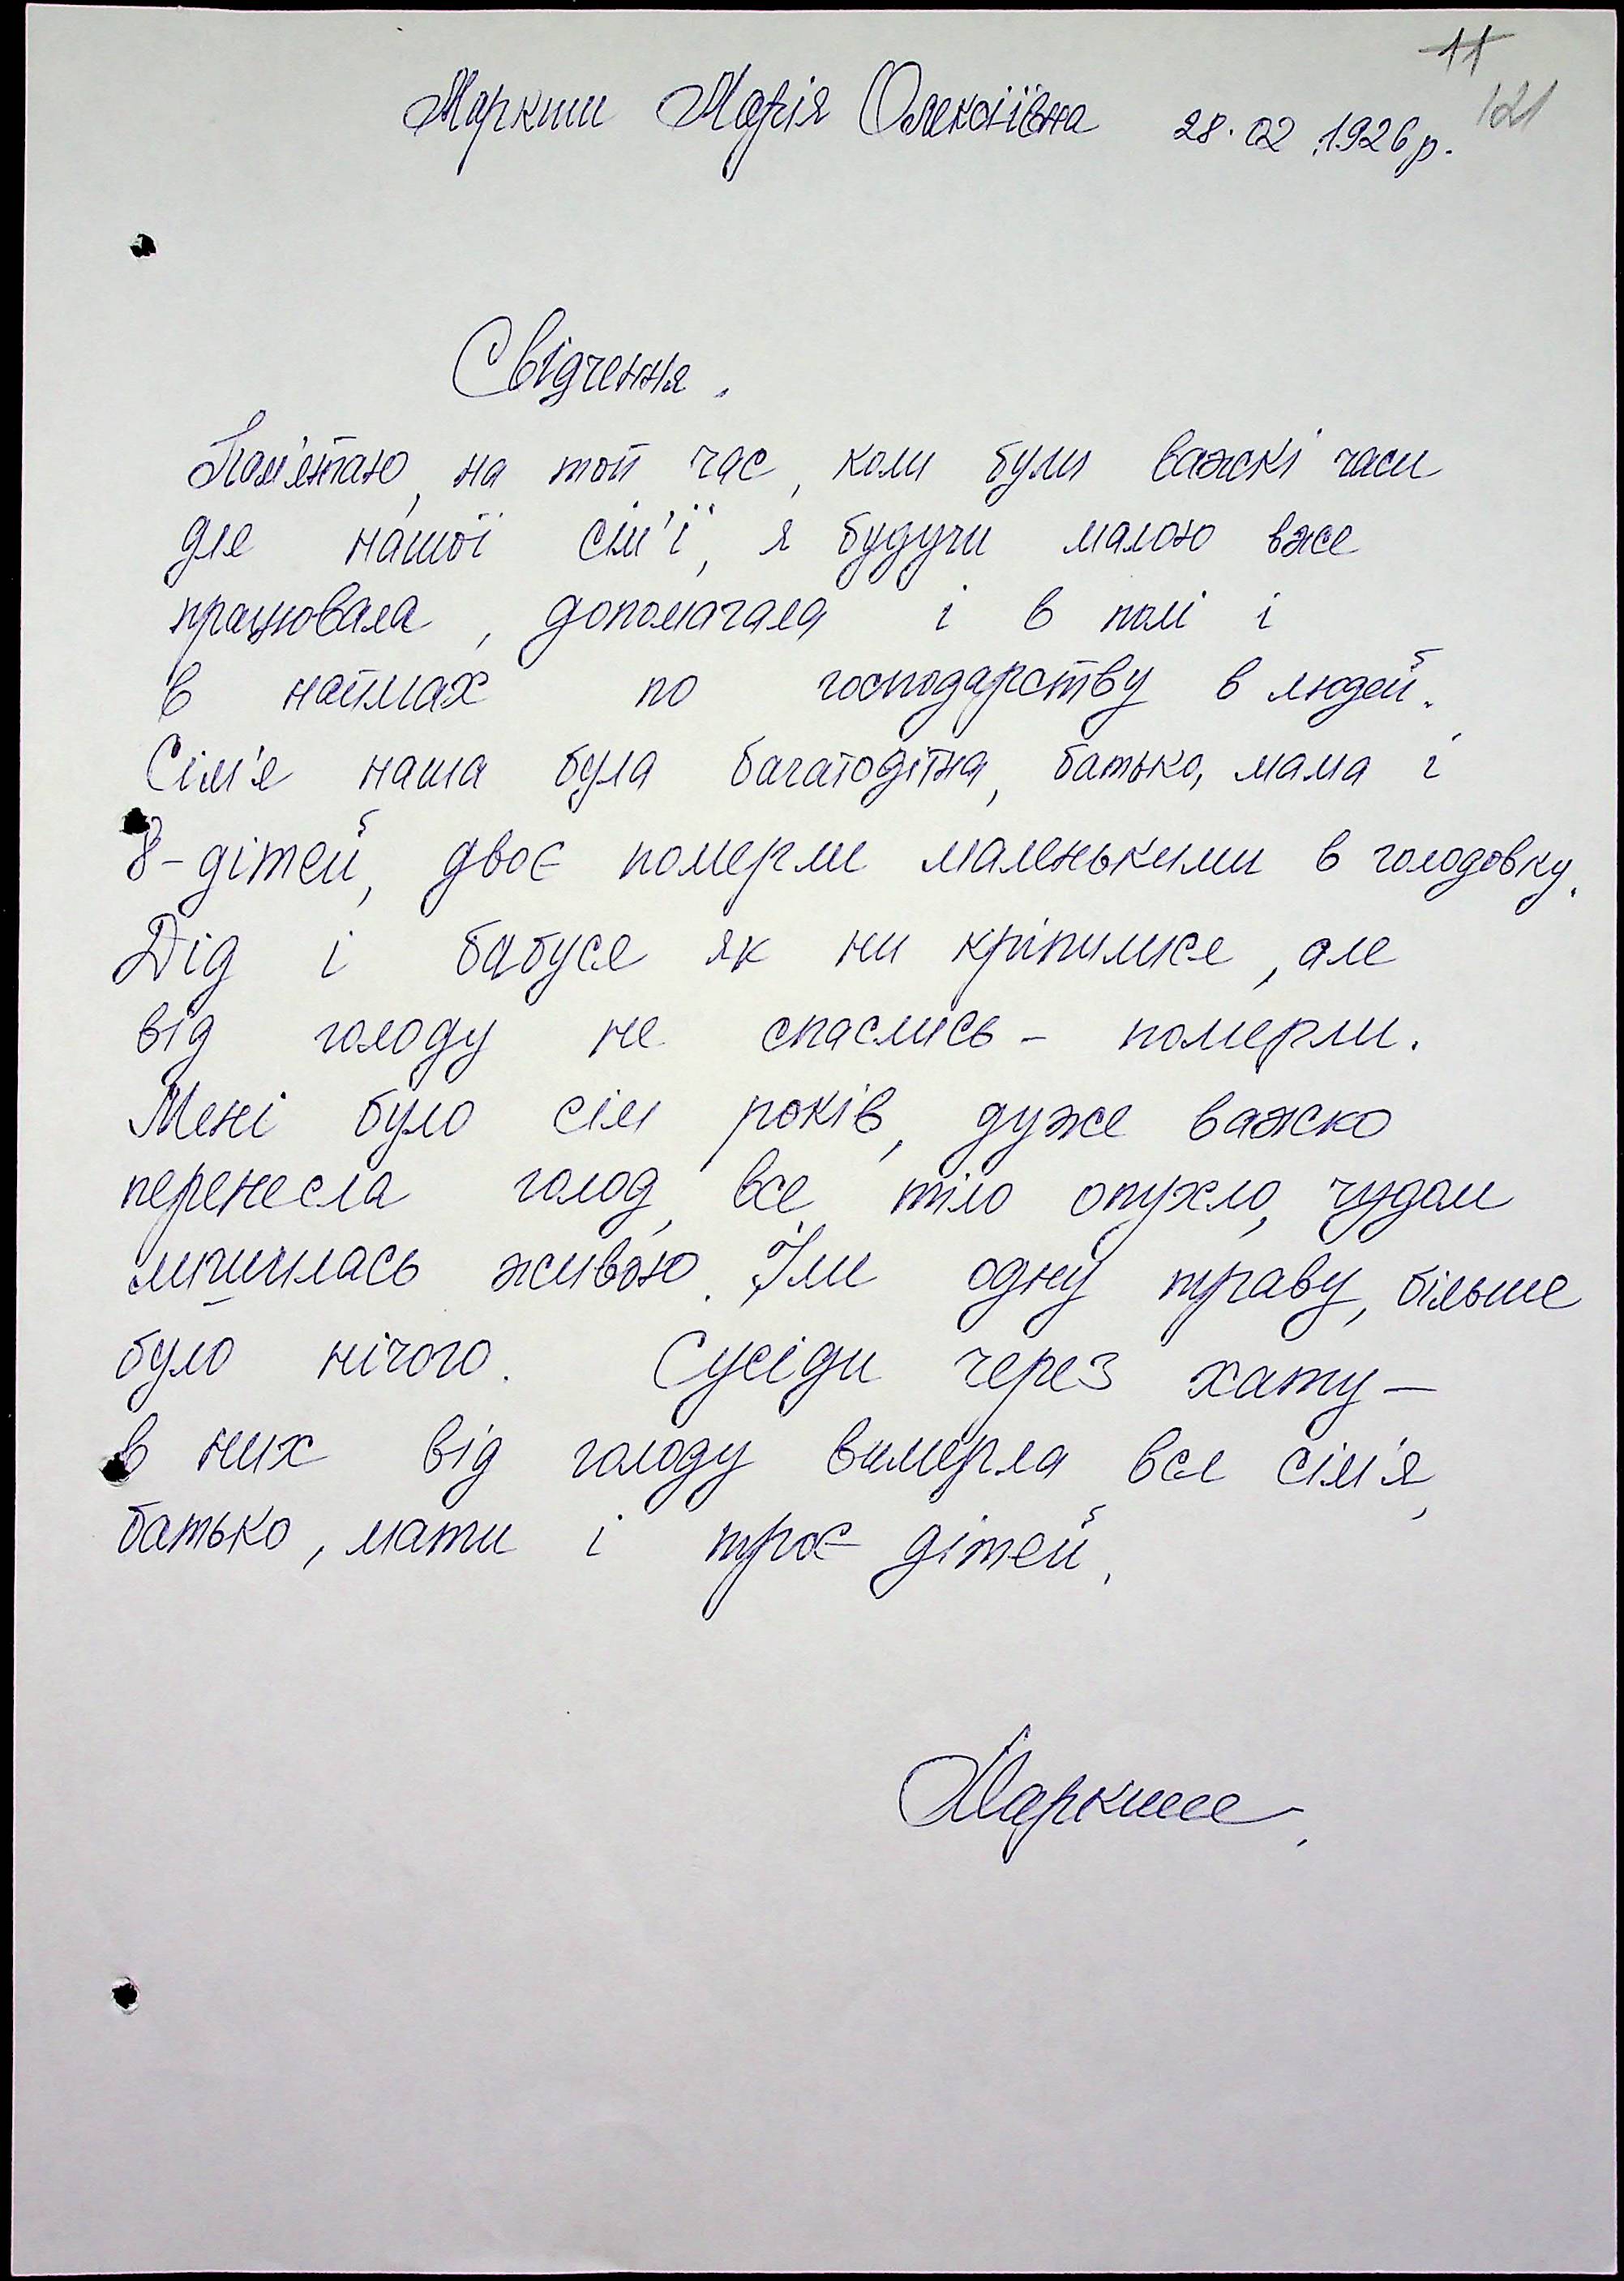 11
121
Маркиш Марія Олексіївна 28.02.1926р.
Свідчення.
Пам'ятаю, на той час, коли були важкі часи
для нашої сім'ї, я будучи малою вже
працювала, допомагала і в полі і
в наймах по господарству в людей.
Сім'я наша була багатодітна, батько, мама і
8-дітей, двоє померли маленькими в голодовку.
Дід і бабуся як ни кріпилися, але
від голоду не спаслись - померли.
Мені було сім років, дуже важко
перенесла голод, все тіло опухло, чудом
лишилась живою. Їли одну траву, більше
було нічого. Сусіди через хату -
в них від голоду вимерла вся сім'я,
батько, мати і троє дітей.
Маркиш.